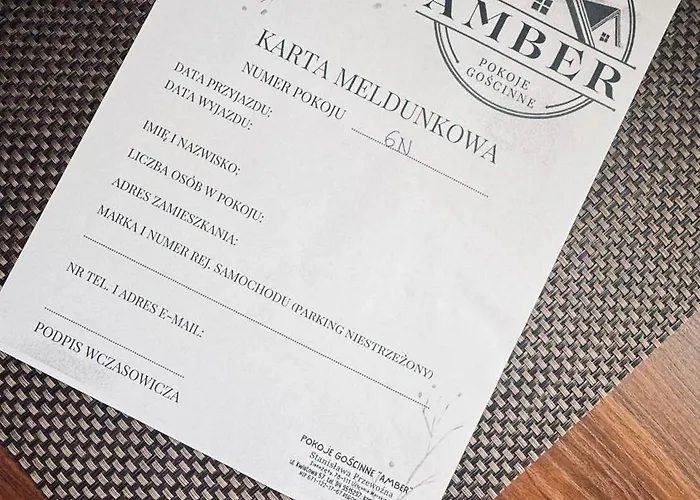 AMBER
POKOJE
GOŚCINNE
KARTA MELDUNKOWA
NUMER POKOJU 6N
DATA PRZYJAZDU:
DATA WYJAZDU:
IMIĘ I NAZWISKO:
LICZBA OSÓB W POKOJU:
ADRES ZAMIESZKANIA:
MARKA I NUMER REJ. SAMOCHODU (PARKING NIESTRZEŻONY)
NR TEL. I ADRES E-MAIL:
PODPIS WCZASOWICZA
POKOJE GOŚCINNE "AMBER"
Stanisława Przewoźna